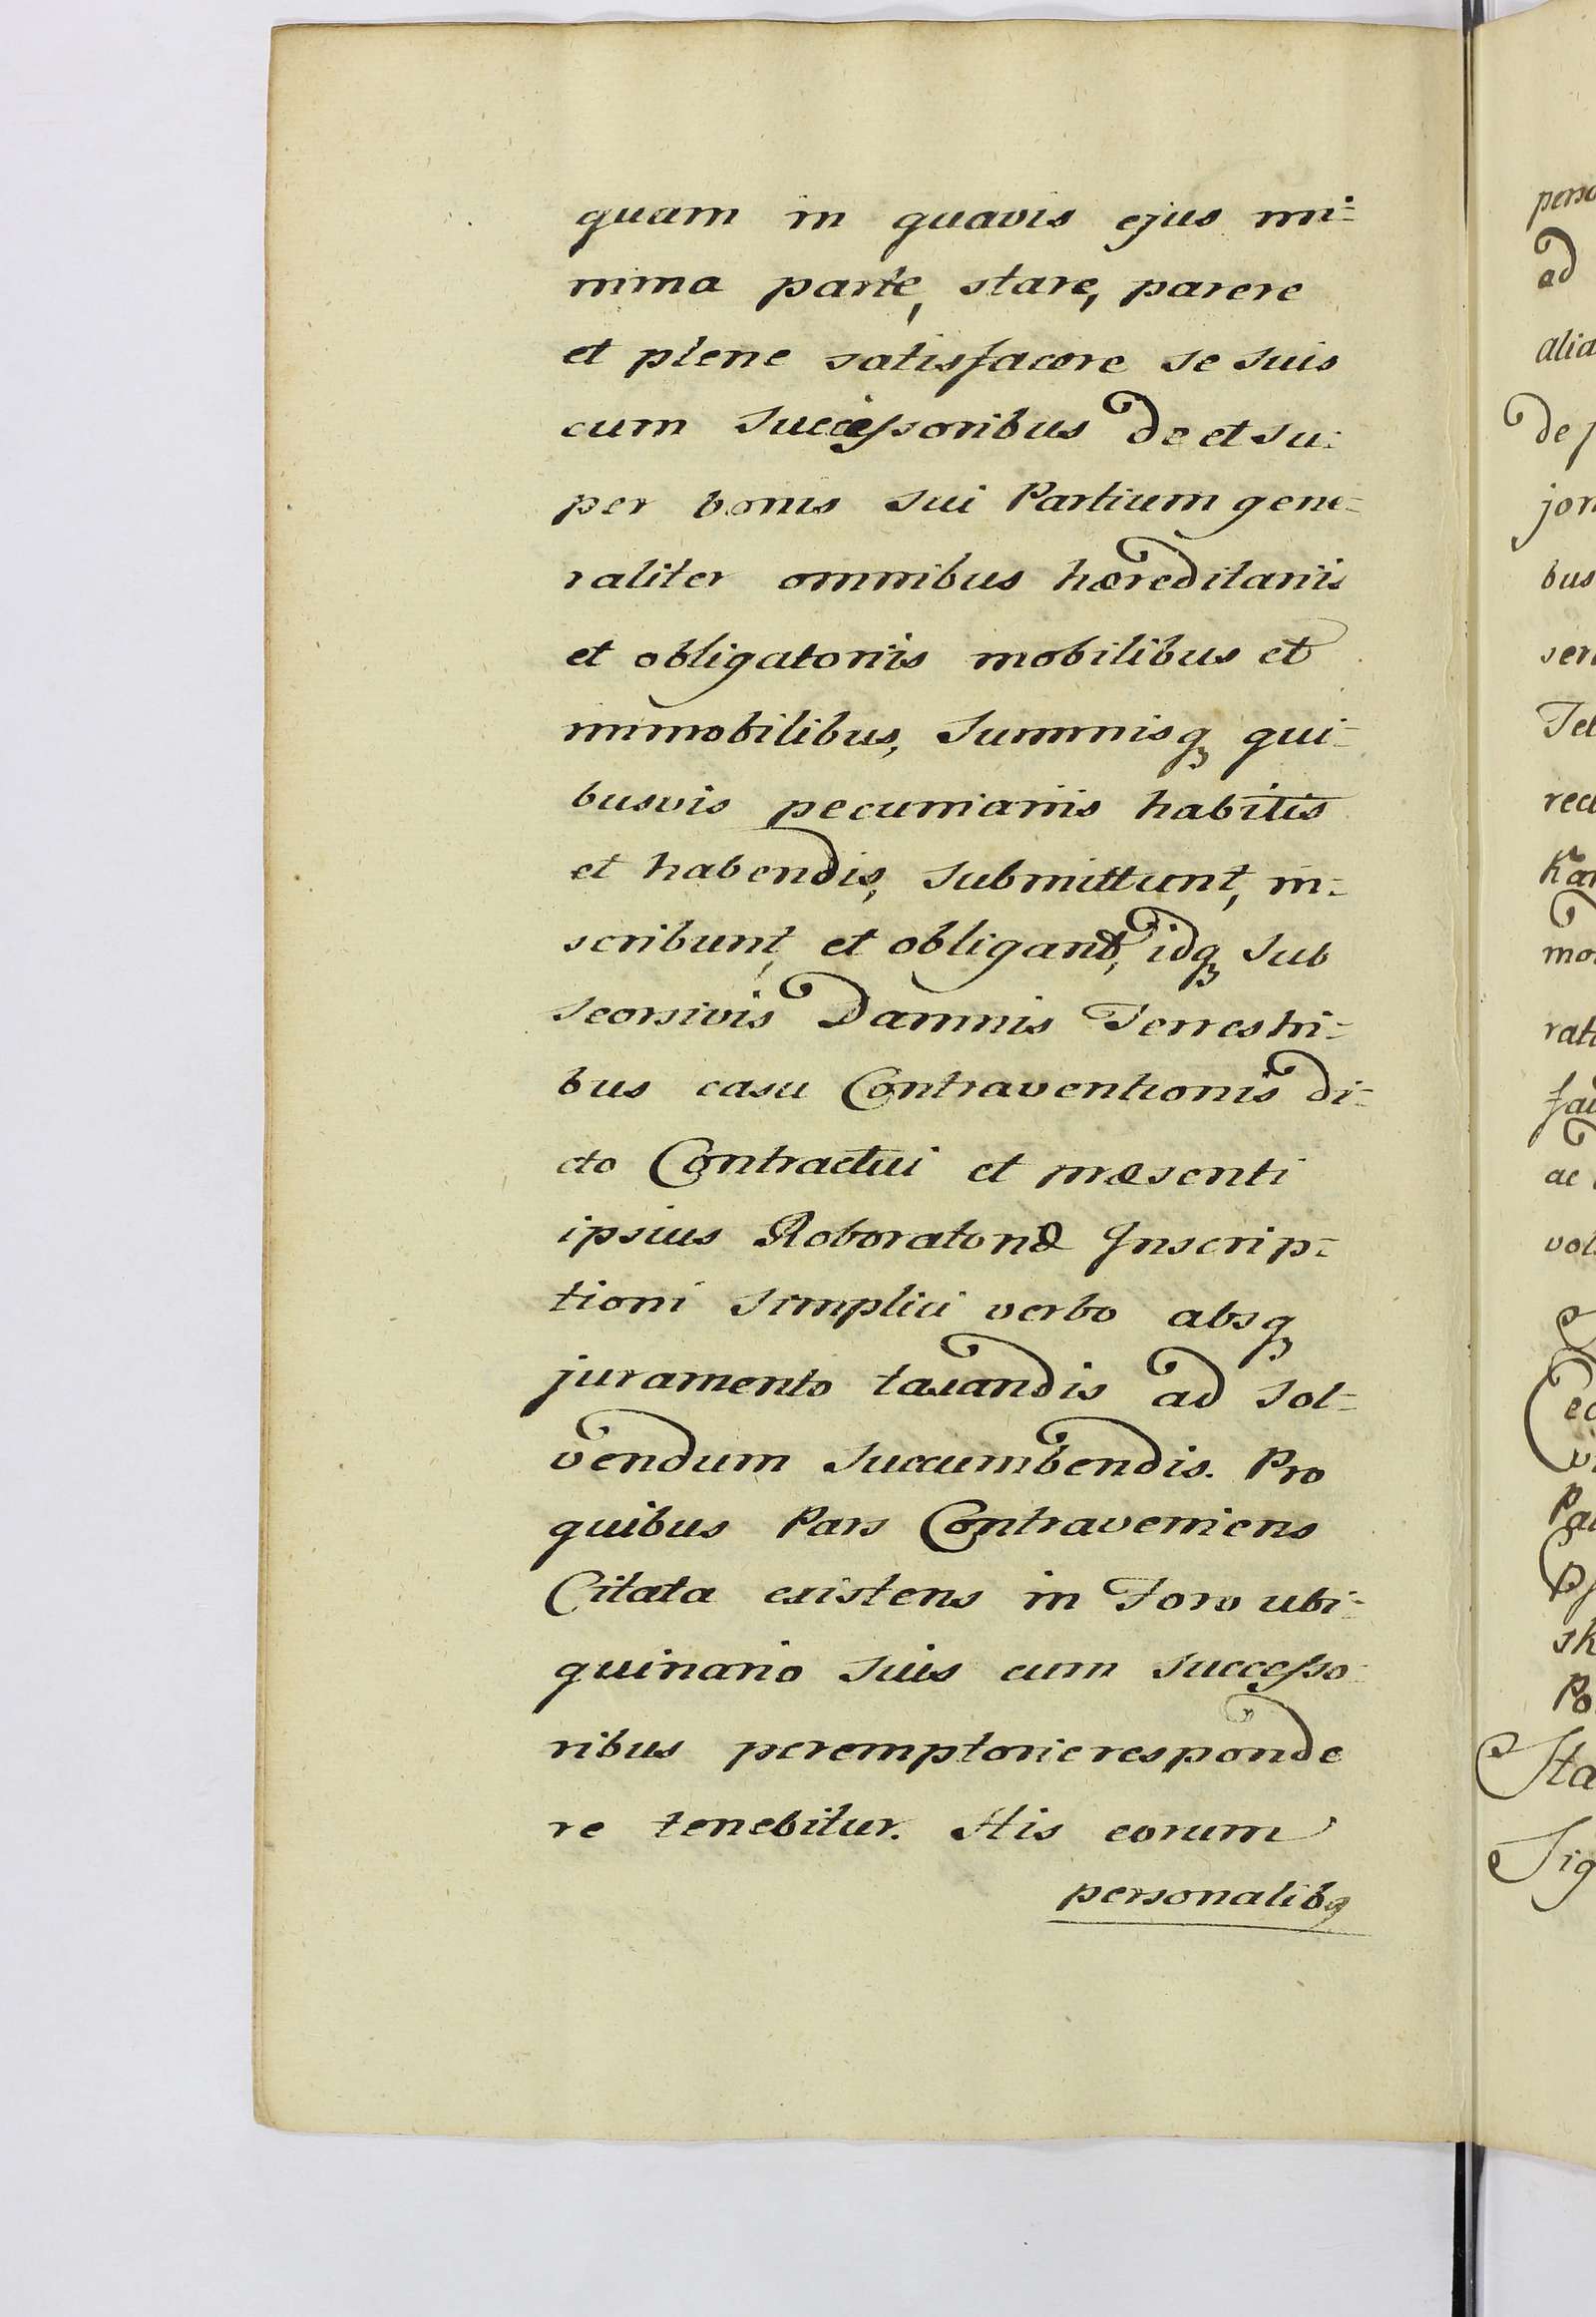 quam in quavis ejus mi=
nima parte, stare, parere
et plene satisfacere se suis
cum Successoribus de et su=
per bonis sui Partium gene=
raliter omnibus hæreditariis
et obligatoriis mobilibus et
immobilibus, Summisq qui=
busvis pecuniariis habitis
et habendis, submittunt, in=
scribunt, et obligant, idq Sub
seorsivis Damnis Terrestri=
bus casu Contraventionis di=
cto Contractui et præsenti
ipsius Roboratoriæ Inscrip=
tioni simplici verbo absq
juramento taxandis ad sol=
vendum succumbendis. Pro
quibus Pars Contraveniens
Citata existens in Foro ubi=
quinario suis cum successo=
ribus peremptorie responde
re tenebitur. His eorum
personalibq
perso
ad
alia
de
jor
bus
ser
rec
Kar
mo
rat
ac
vol
Pa
sk
Po
Sta
Sig